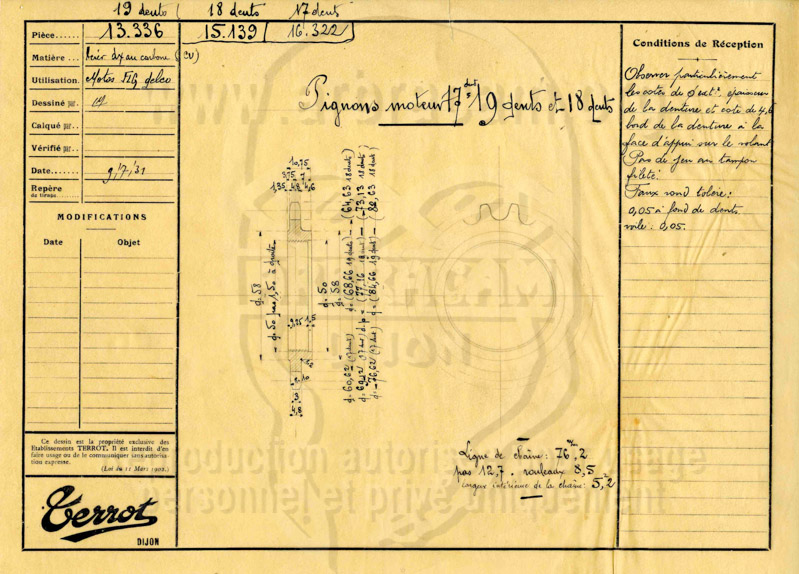 19 dents 18 dents 17 dents
Pièce...... 13.336 15.139 16.322
Matière ... Acier dx au carbone (CU)
Utilisation. Motos FLG delco
Dessiné par..
Calqué par..
Vérifié par..
Date....... 9.7.31
Repère
de tirage
MODIFICATIONS
Date Objet
Ce dessin est la propriété exclusive des
Etablissements TERROT. Il est interdit d'en
faire usage ou de le communiquer sans autorisa-
tion expresse.
(Loi du 11 Mars 1902.)
Terrot
DIJON
Pignons moteur 17 dents 19 dents et 18 dents
10,75
3,75 3
1,35 4,8 4,6
d= 58
d= 50 pas 1,50 à droite
9,25 1,5
d= 50
d= 58
d= 60,62 (17 dents) d= (68,66 19 dents) - (64,63 18 dents)
d= 69,12 (17 dts) d.p = (77,16 19 dents) - (73,13 18 dents)
d= 76,62 (17 dts) d= (84,66 19 dents) - (80,63 18 dents)
Ligne de chaîne: 76,2
pas 12,7. rouleaux 8,5
largeur intérieure de la chaîne: 5,2
Conditions de Réception
Observer particulièrement
les cotes de d ext., épaisseur
de la denture et cote de 4,6
bord de la denture à la
face d'appui sur le volant
Pas de jeu au tampon
fileté.
Faux rond toléré:
0,05 à fond de dents
voile: 0,05.
reproduction autorisée à usage
personnel et privé uniquement